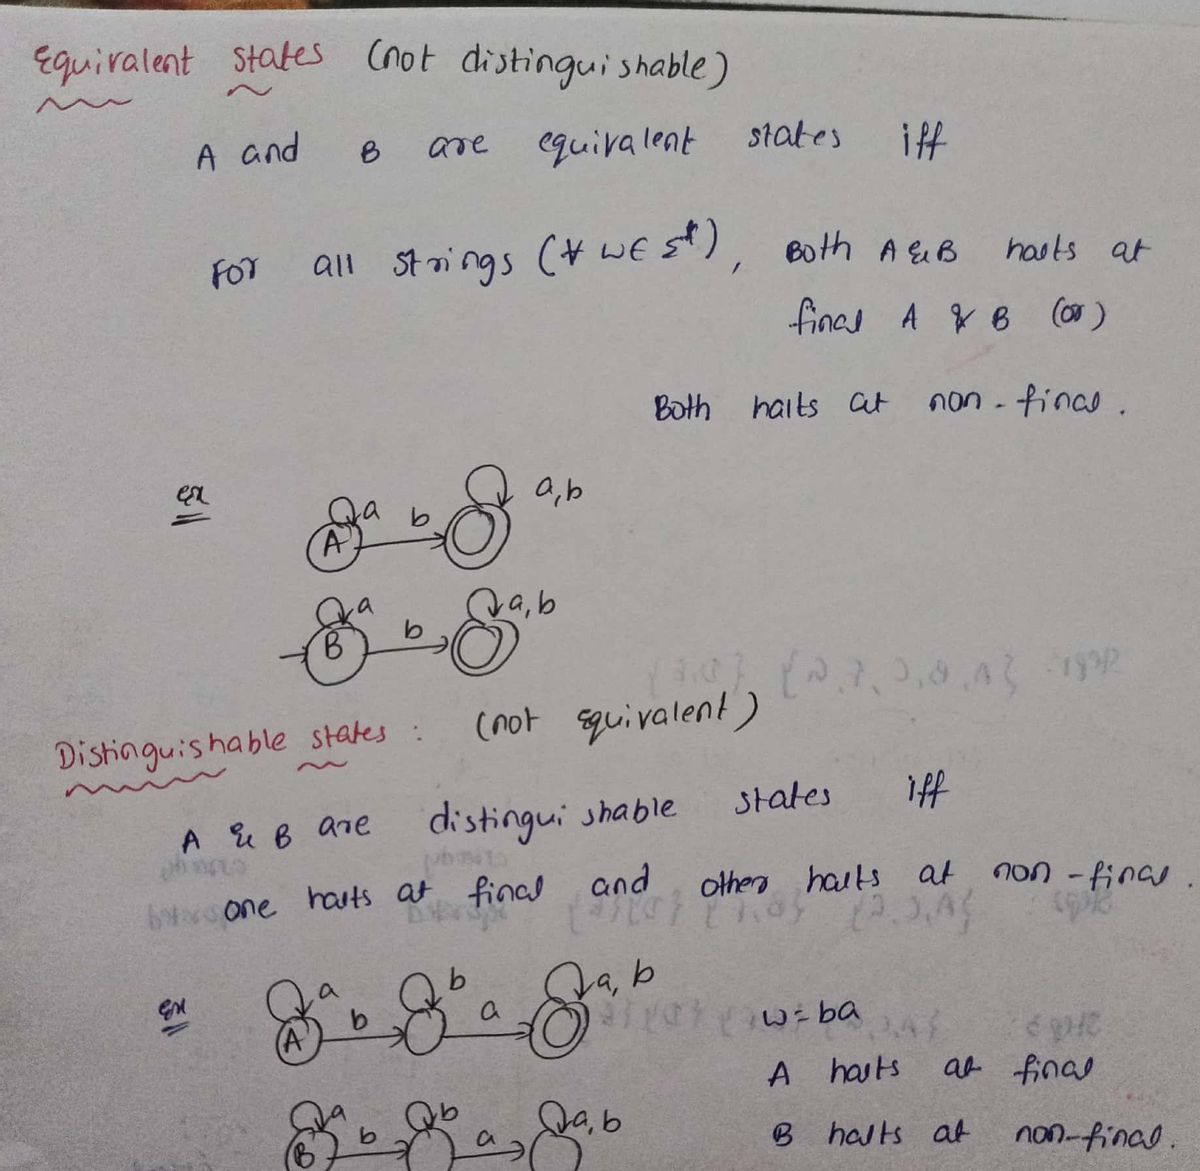 Equivalent states (not distinguishable)
A and B are equivalent states iff
For all strings (∀ w∈ Σ*), Both A & B halts at
final A & B (or)
Both halts at non-final.
ex
a b a,b
A
a b a,b
B
Distinguishable states : (not equivalent)
A & B are distinguishable states iff
one halts at final and other halts at non-final.
Ex
a b b a a, b
A
w=ba
A halts at final
a b b a a,b
B
B halts at non-final.